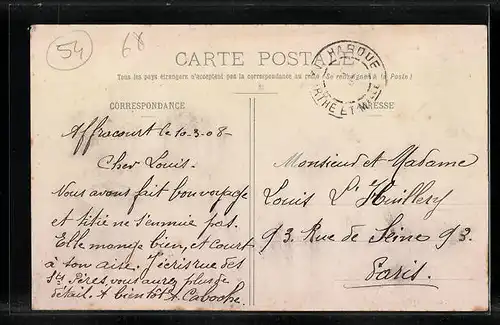 54
68
CARTE POSTALE
Tous les pays étrangers n'acceptent pas la correspondance au recto (Se renseigner à la Poste)
HAROUÉ
MRTHE ET MLLE
CORRESPONDANCE
ADRESSE
Affracourt le 10-3-08-
Cher Louis.
Nous avons fait bon voyage
et titie ne s'ennuie pas.
Elle mange bien, et court
à son aise. J'écris rue des
Sts Pères, vous aurez plus de
détail. A bientôt A. Caboche.
Monsieur et Madame
Louis L'Huillery
93. Rue de Seine 93.
Paris.